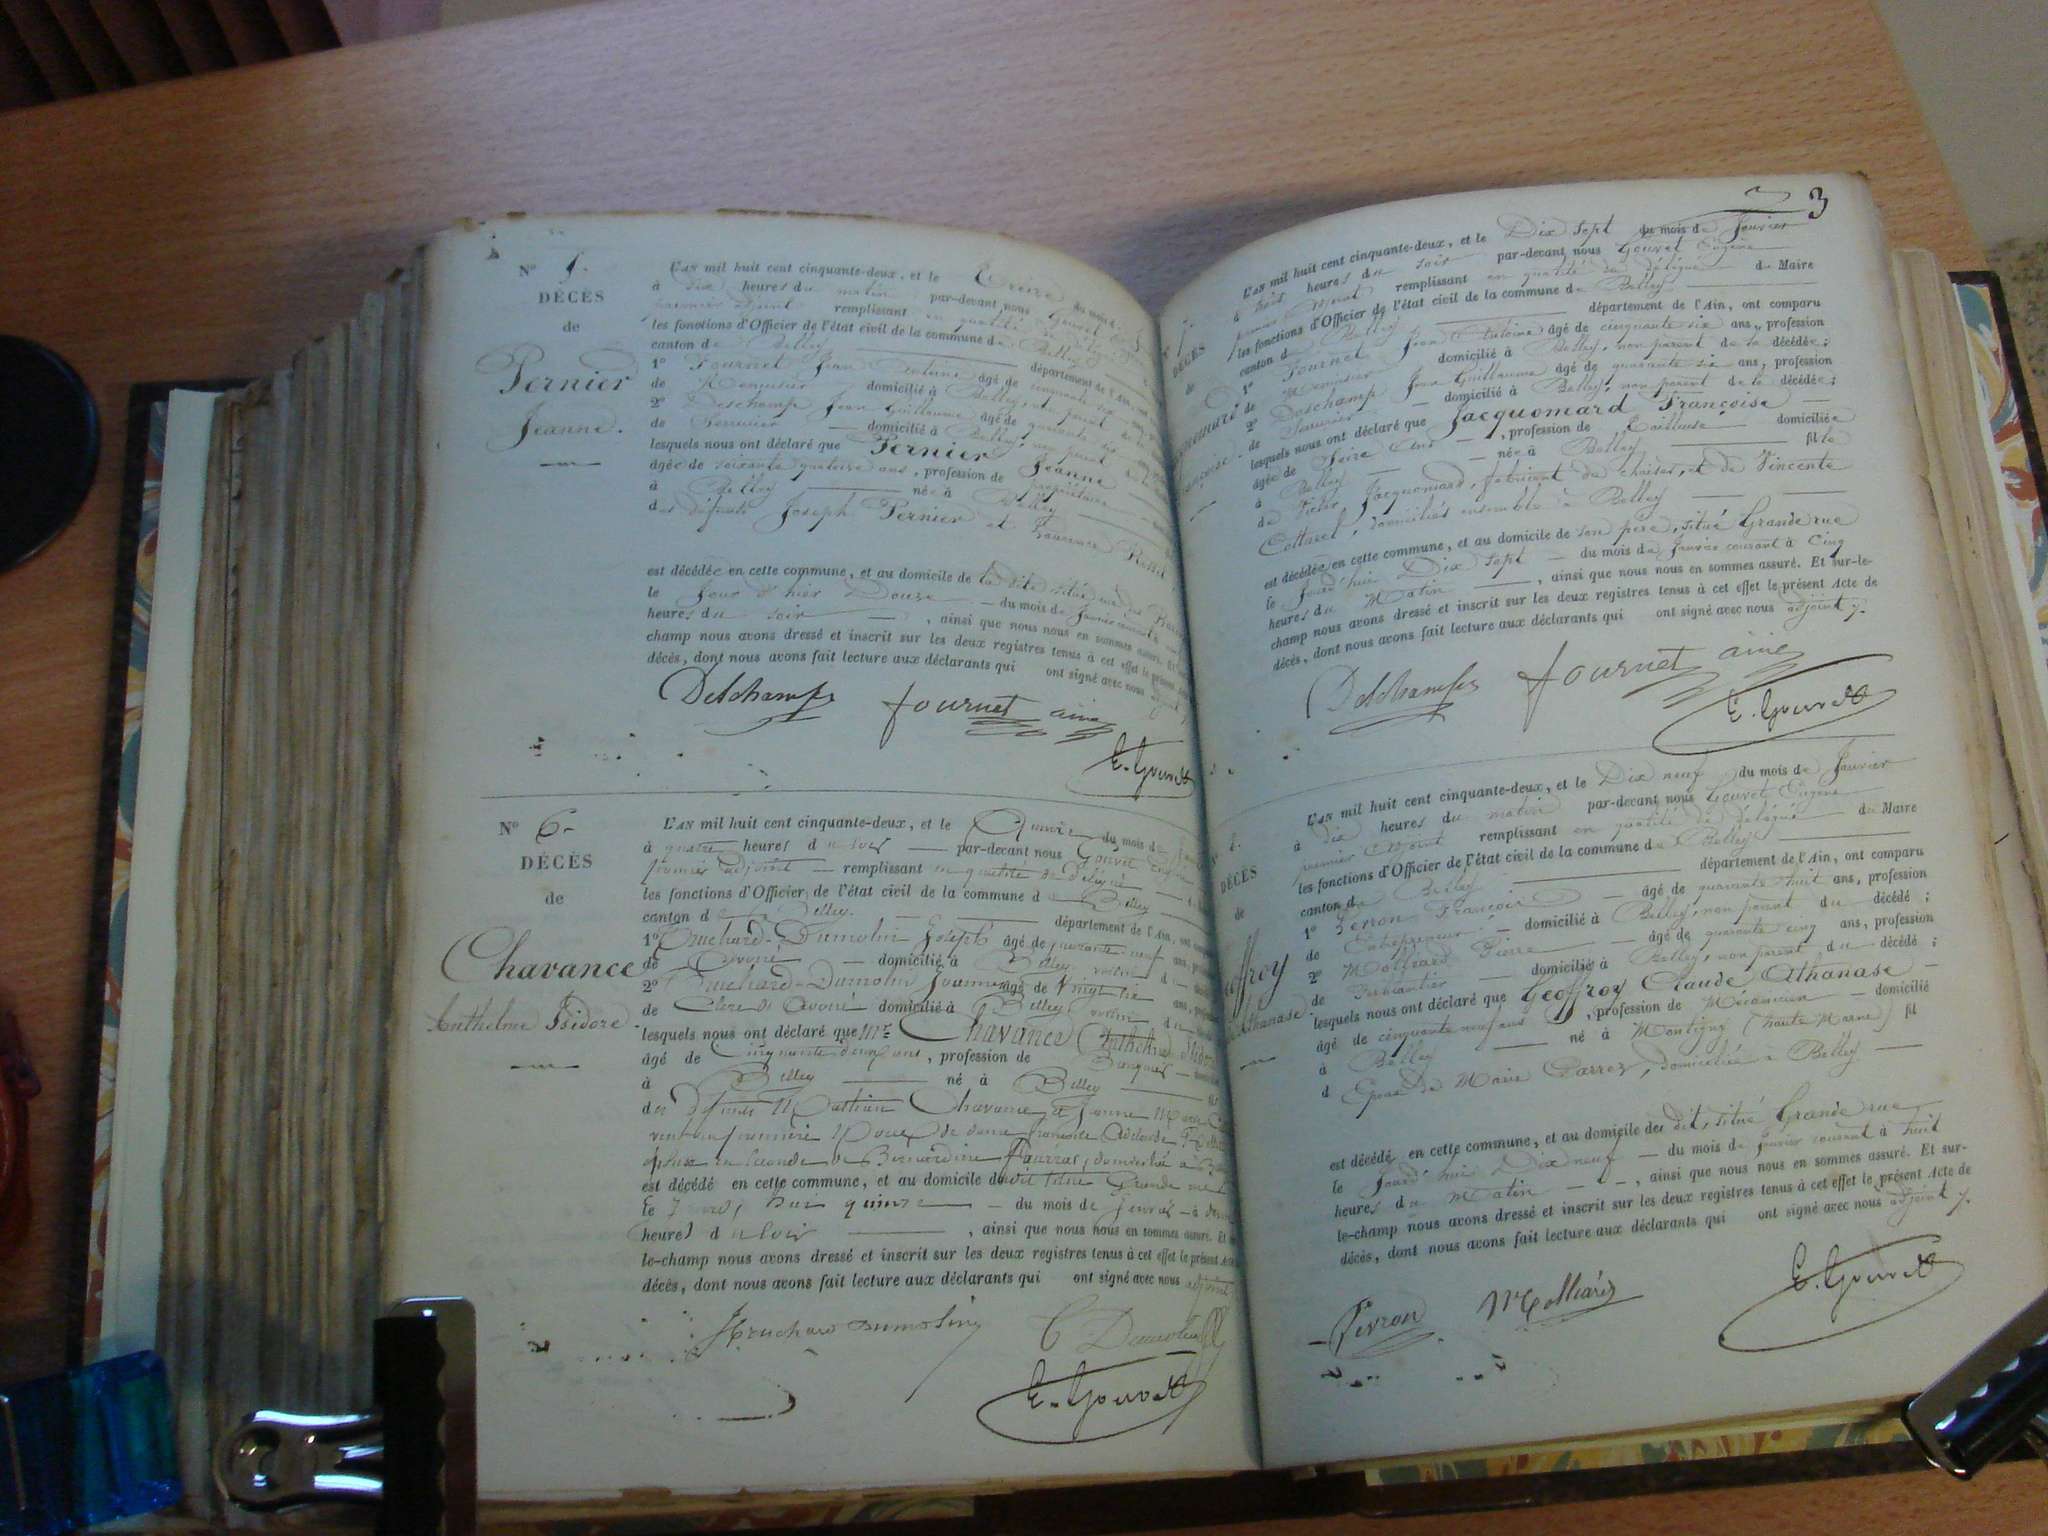 N° 5.
DÉCÈS
de
Pernier
Jeanne.
L'AN mil huit cent cinquante-deux, et le Treize du mois de
à dix heures du matin par-devant nous Gouvet
premier adjoint remplissant en qualité de
les fonctions d'Officier de l'état civil de la commune de Belley
canton de Belley département de l'Ain, ont
1° Fournet Jean Antoine âgé de cinquante six
de Menuisier domicilié à Belley, non parent de la
2° Deschamp Jean Guillaume âgé de quarante six
de Serrurier domicilié à Belley, non parent de la
lesquels nous ont déclaré que Pernier Jeanne
âgée de soixante quatorze ans, profession de propriétaire
à Belley née à Belley
des défunts Joseph Pernier et
est décédée en cette commune, et au domicile de la dite situé rue
le Jour d'hier Douze du mois de Janvier courant à
heures du soir , ainsi que nous nous en sommes assuré. Et
champ nous avons dressé et inscrit sur les deux registres tenus à cet effet le présent
décès, dont nous avons fait lecture aux déclarants qui ont signé avec nous
Deschamps fournet ainé
E. Gouvet
N° 6
DÉCÈS
de
Chavance
Anthelme Isidore
L'AN mil huit cent cinquante-deux, et le Quinze du mois de
à quatre heures du soir par-devant nous Gouvet Eugène
premier adjoint remplissant en qualité de délégué
les fonctions d'Officier de l'état civil de la commune de Belley
canton de Belley. département de l'Ain, ont
1° Truchard-Dumolin Joseph âgé de neuf ans,
de Avoué domicilié à Belley voisin d
2° Truchard-Dumolin âgé de Vingt six ans,
de Clerc d'Avoué domicilié à Belley voisin du
lesquels nous ont déclaré que Mr Chavance Anthelme Isidore
âgé de Cinquante deux ans, profession de Banquier
à Belley né à Belley
des défunts Chavance et Jeanne Marie
veuf en première Noces de dame Adelaïde
époux en seconde de Bernardine domiciliée à
est décédé en cette commune, et au domicile dudit situé Grande rue
le Jourd'hui quinze du mois de Janvier à
heures du soir , ainsi que nous nous en sommes assuré. Et
le-champ nous avons dressé et inscrit sur les deux registres tenus à cet effet le présent Acte
décès, dont nous avons fait lecture aux déclarants qui ont signé avec nous adjoint
Truchard Dumolin
E. Gouvet
3
DÉCÈS
de
L'AN mil huit cent cinquante-deux, et le Dix sept du mois de Janvier
à trois heures du soir par-devant nous Gouvet Eugène
premier adjoint remplissant en qualité de délégué du Maire
les fonctions d'Officier de l'état civil de la commune de Belley
canton de Belley département de l'Ain, ont comparu
1° Fournet Jean Antoine âgé de cinquante six ans, profession
de Menuisier domicilié à Belley, non parent de la décédée;
2° Deschamp Jean Guillaume âgé de quarante six ans, profession
de Serrurier domicilié à Belley, non parent de la décédée;
lesquels nous ont déclaré que Jacquomard Françoise
âgée de Seize ans , profession de Tailleuse domiciliée
à Belley née à Belley fille
de Victor Jacquomard, fabricant de chaises, et de Vincente
Cottarel, domiciliés ensemble à Belley
est décédée en cette commune, et au domicile de son père, situé Grande rue
le Jourd'hui Dix sept du mois de Janvier courant à Cinq
heures du Matin , ainsi que nous nous en sommes assuré. Et sur-le-
champ nous avons dressé et inscrit sur les deux registres tenus à cet effet le présent Acte de
décès, dont nous avons fait lecture aux déclarants qui ont signé avec nous adjoint
Deschamps fournet ainé
E. Gouvet
DÉCÈS
de
L'AN mil huit cent cinquante-deux, et le Dix neuf du mois de Janvier
à dix heures du matin par-devant nous Gouvet Eugène
premier adjoint remplissant en qualité de délégué du Maire
les fonctions d'Officier de l'état civil de la commune de Belley
canton de Belley département de l'Ain, ont comparu
1° Perron François âgé de quarante huit ans, profession
de Entrepreneur domicilié à Belley, non parent du décédé;
2° Molliard Pierre âgé de quarante cinq ans, profession
de Ferblantier domicilié à Belley, non parent du décédé;
lesquels nous ont déclaré que Geoffroy Claude Athanase
âgé de cinquante neuf ans , profession de Mécanicien domicilié
à Belley né à Montigny (haute Marne) fil
d Epoux De Marie Carrez, domiciliée à Belley
est décédé en cette commune, et au domicile du dit, situé Grande rue
le Jourd'hui Dix neuf du mois de Janvier courant à huit
heures du Matin , ainsi que nous nous en sommes assuré. Et sur-
le-champ nous avons dressé et inscrit sur les deux registres tenus à cet effet le présent Acte de
décès, dont nous avons fait lecture aux déclarants qui ont signé avec nous adjoint
Perron Molliard
E. Gouvet